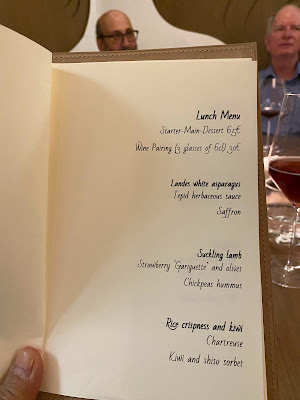 Lunch Menu
Starter-Main-Dessert 65€
Wine Pairing (3 glasses of 6cl) 30€
Landes white asparagus
Tepid herbaceous sauce
Saffron
Suckling lamb
Strawberry "Gariguette" and olives
Chickpeas hummus
Rice crispness and kiwi
Chartreuse
Kiwi and shiso sorbet